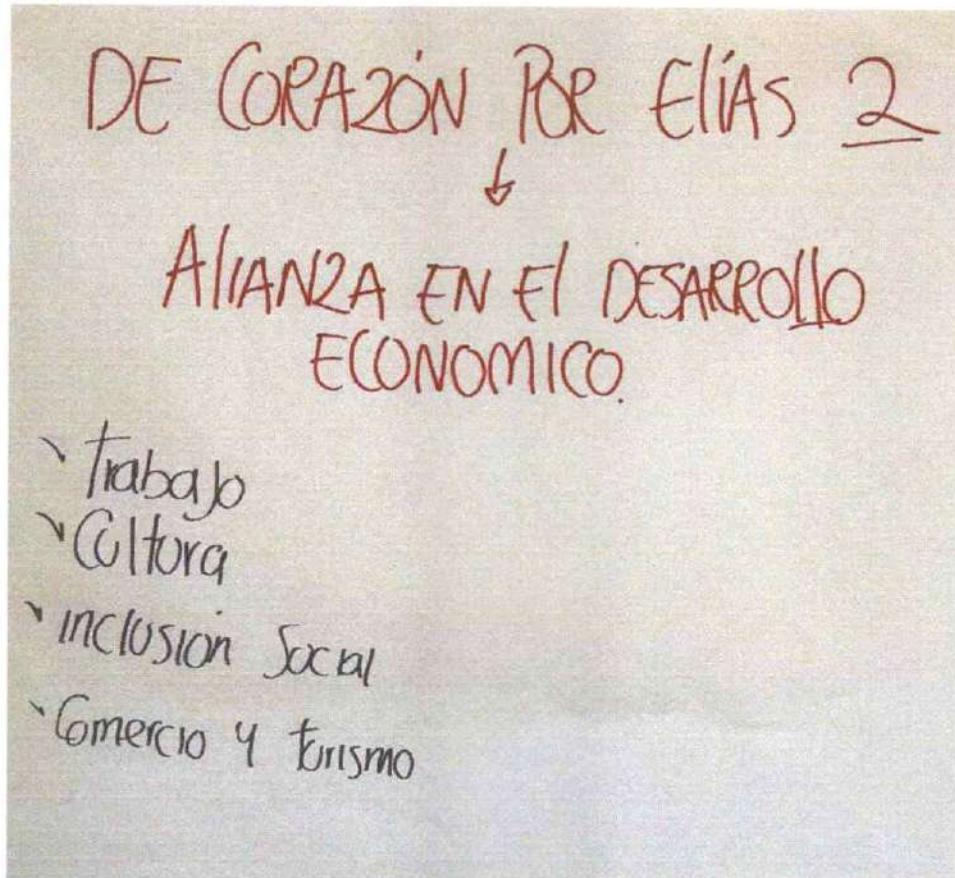 DE CORAZÓN POR ElíAS 2
↓
AlIANZA EN El DESARROllO
ECONOMICO.
Trabajo
Cultura
inclusión Social
Comercio y turismo